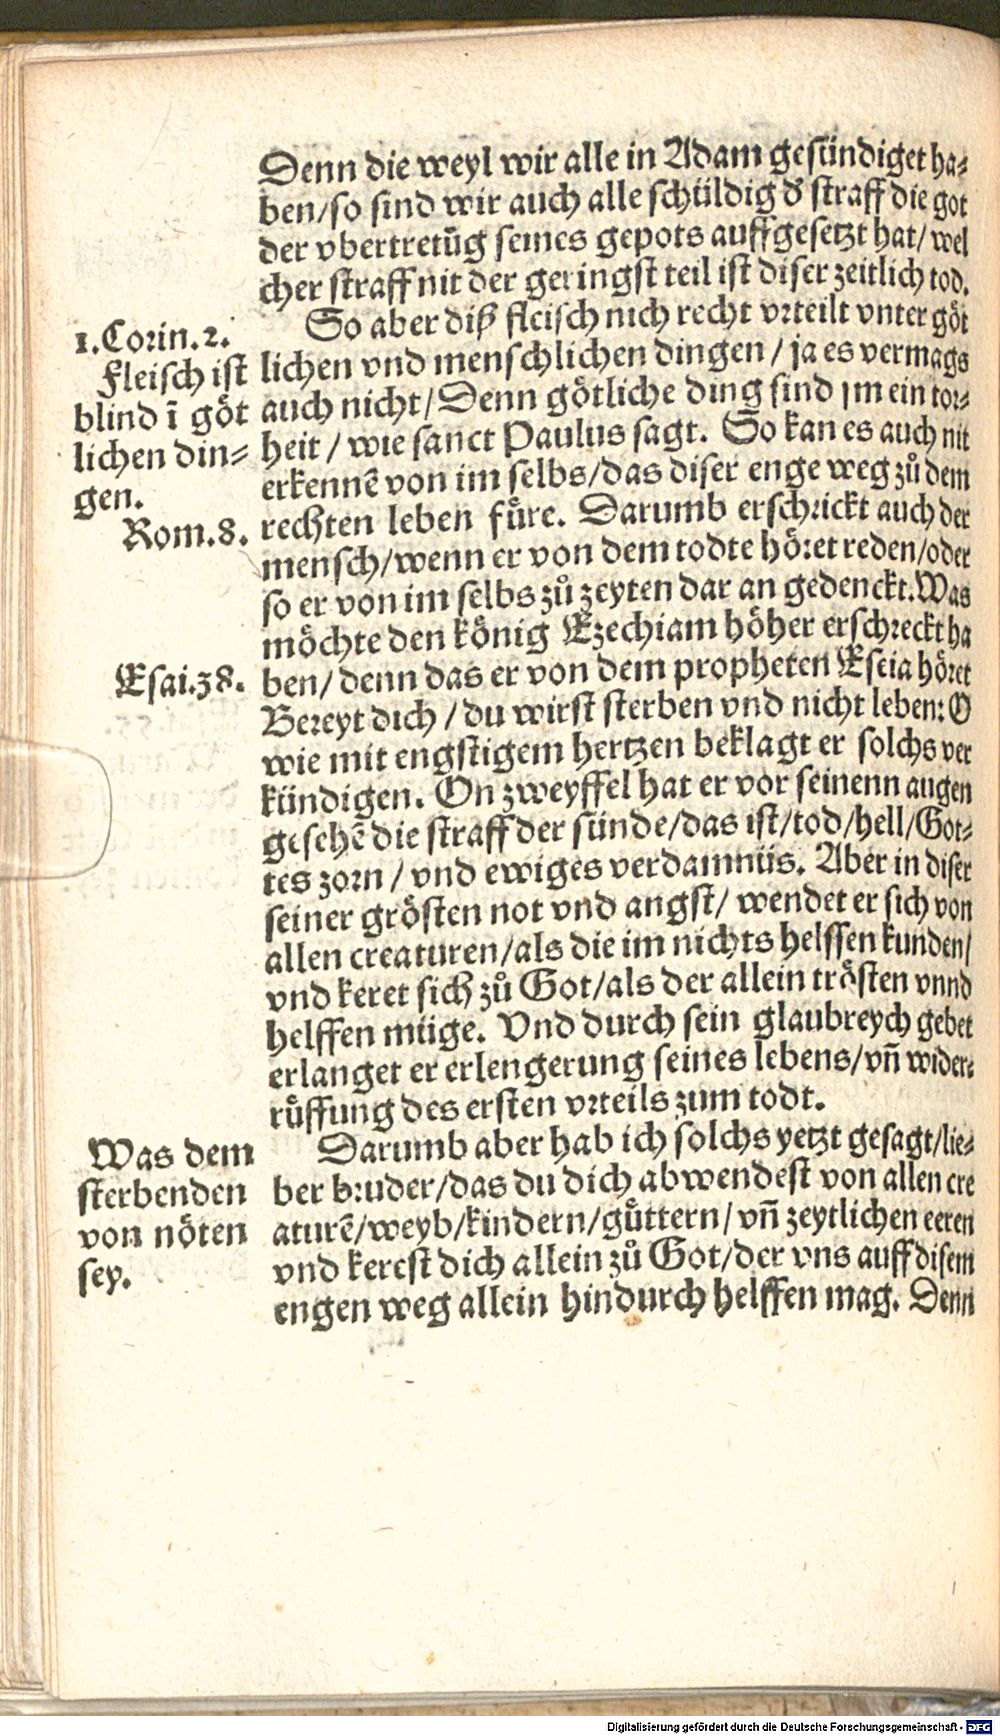 Denn die weyl wir alle in Adam gesündiget ha-
ben/so sind wir auch alle schüldig d' straff die got
der vbertretūg seines gepots auffgesetzt hat/ wel
cher straff nit der geringst teil ist diser zeitlich tod.
So aber diß fleisch nich recht vrteilt vnter göt
lichen vnd menschlichen dingen / ja es vermags
auch nicht/Denn götliche ding sind jm ein tor-
heit / wie sanct Paulus sagt. So kan es auch nit
erkennē von im selbs/das diser enge weg zů dem
rechten leben fůre. Darumb erschrickt auch der
mensch/wenn er von dem todte höret reden/oder
so er von im selbs zů zeyten dar an gedenckt. Was
möchte den könig Ezechiam höher erschreckt ha
ben/ denn das er von dem propheten Eseia höret
Bereyt dich / du wirst sterben vnd nicht leben: O
wie mit engstigem hertzen beklagt er solchs ver
kündigen. On zweyffel hat er vor seinenn augen
gesehē die straff der sünde/das ist/tod/hell/Got-
tes zorn / vnd ewiges verdamnüs. Aber in diser
seiner grösten not vnd angst/ wendet er sich von
allen creaturen/als die im nichts helffen kunden/
vnd keret sich zů Got/als der allein trösten vnnd
helffen müge. Vnd durch sein glaubreych gebet
erlanget er erlengerung seines lebens/vñ wider-
růffung des ersten vrteils zum todt.
Darumb aber hab ich solchs yetzt gesagt/lie-
ber bruder/das du dich abwendest von allen cre
aturē/weyb/kindern/gůttern/ vñ zeytlichen eeren
vnd kerest dich allein zů Got/der vns auff disem
engen weg allein hindurch helffen mag. Denn
1.Corin.2.
Fleisch ist
blind ī göt
lichen din-
gen.
Rom.8.
Esai.38.
Was dem
sterbenden
von nöten
sey.
Digitalisierung gefördert durch die Deutsche Forschungsgemeinschaft - DFG